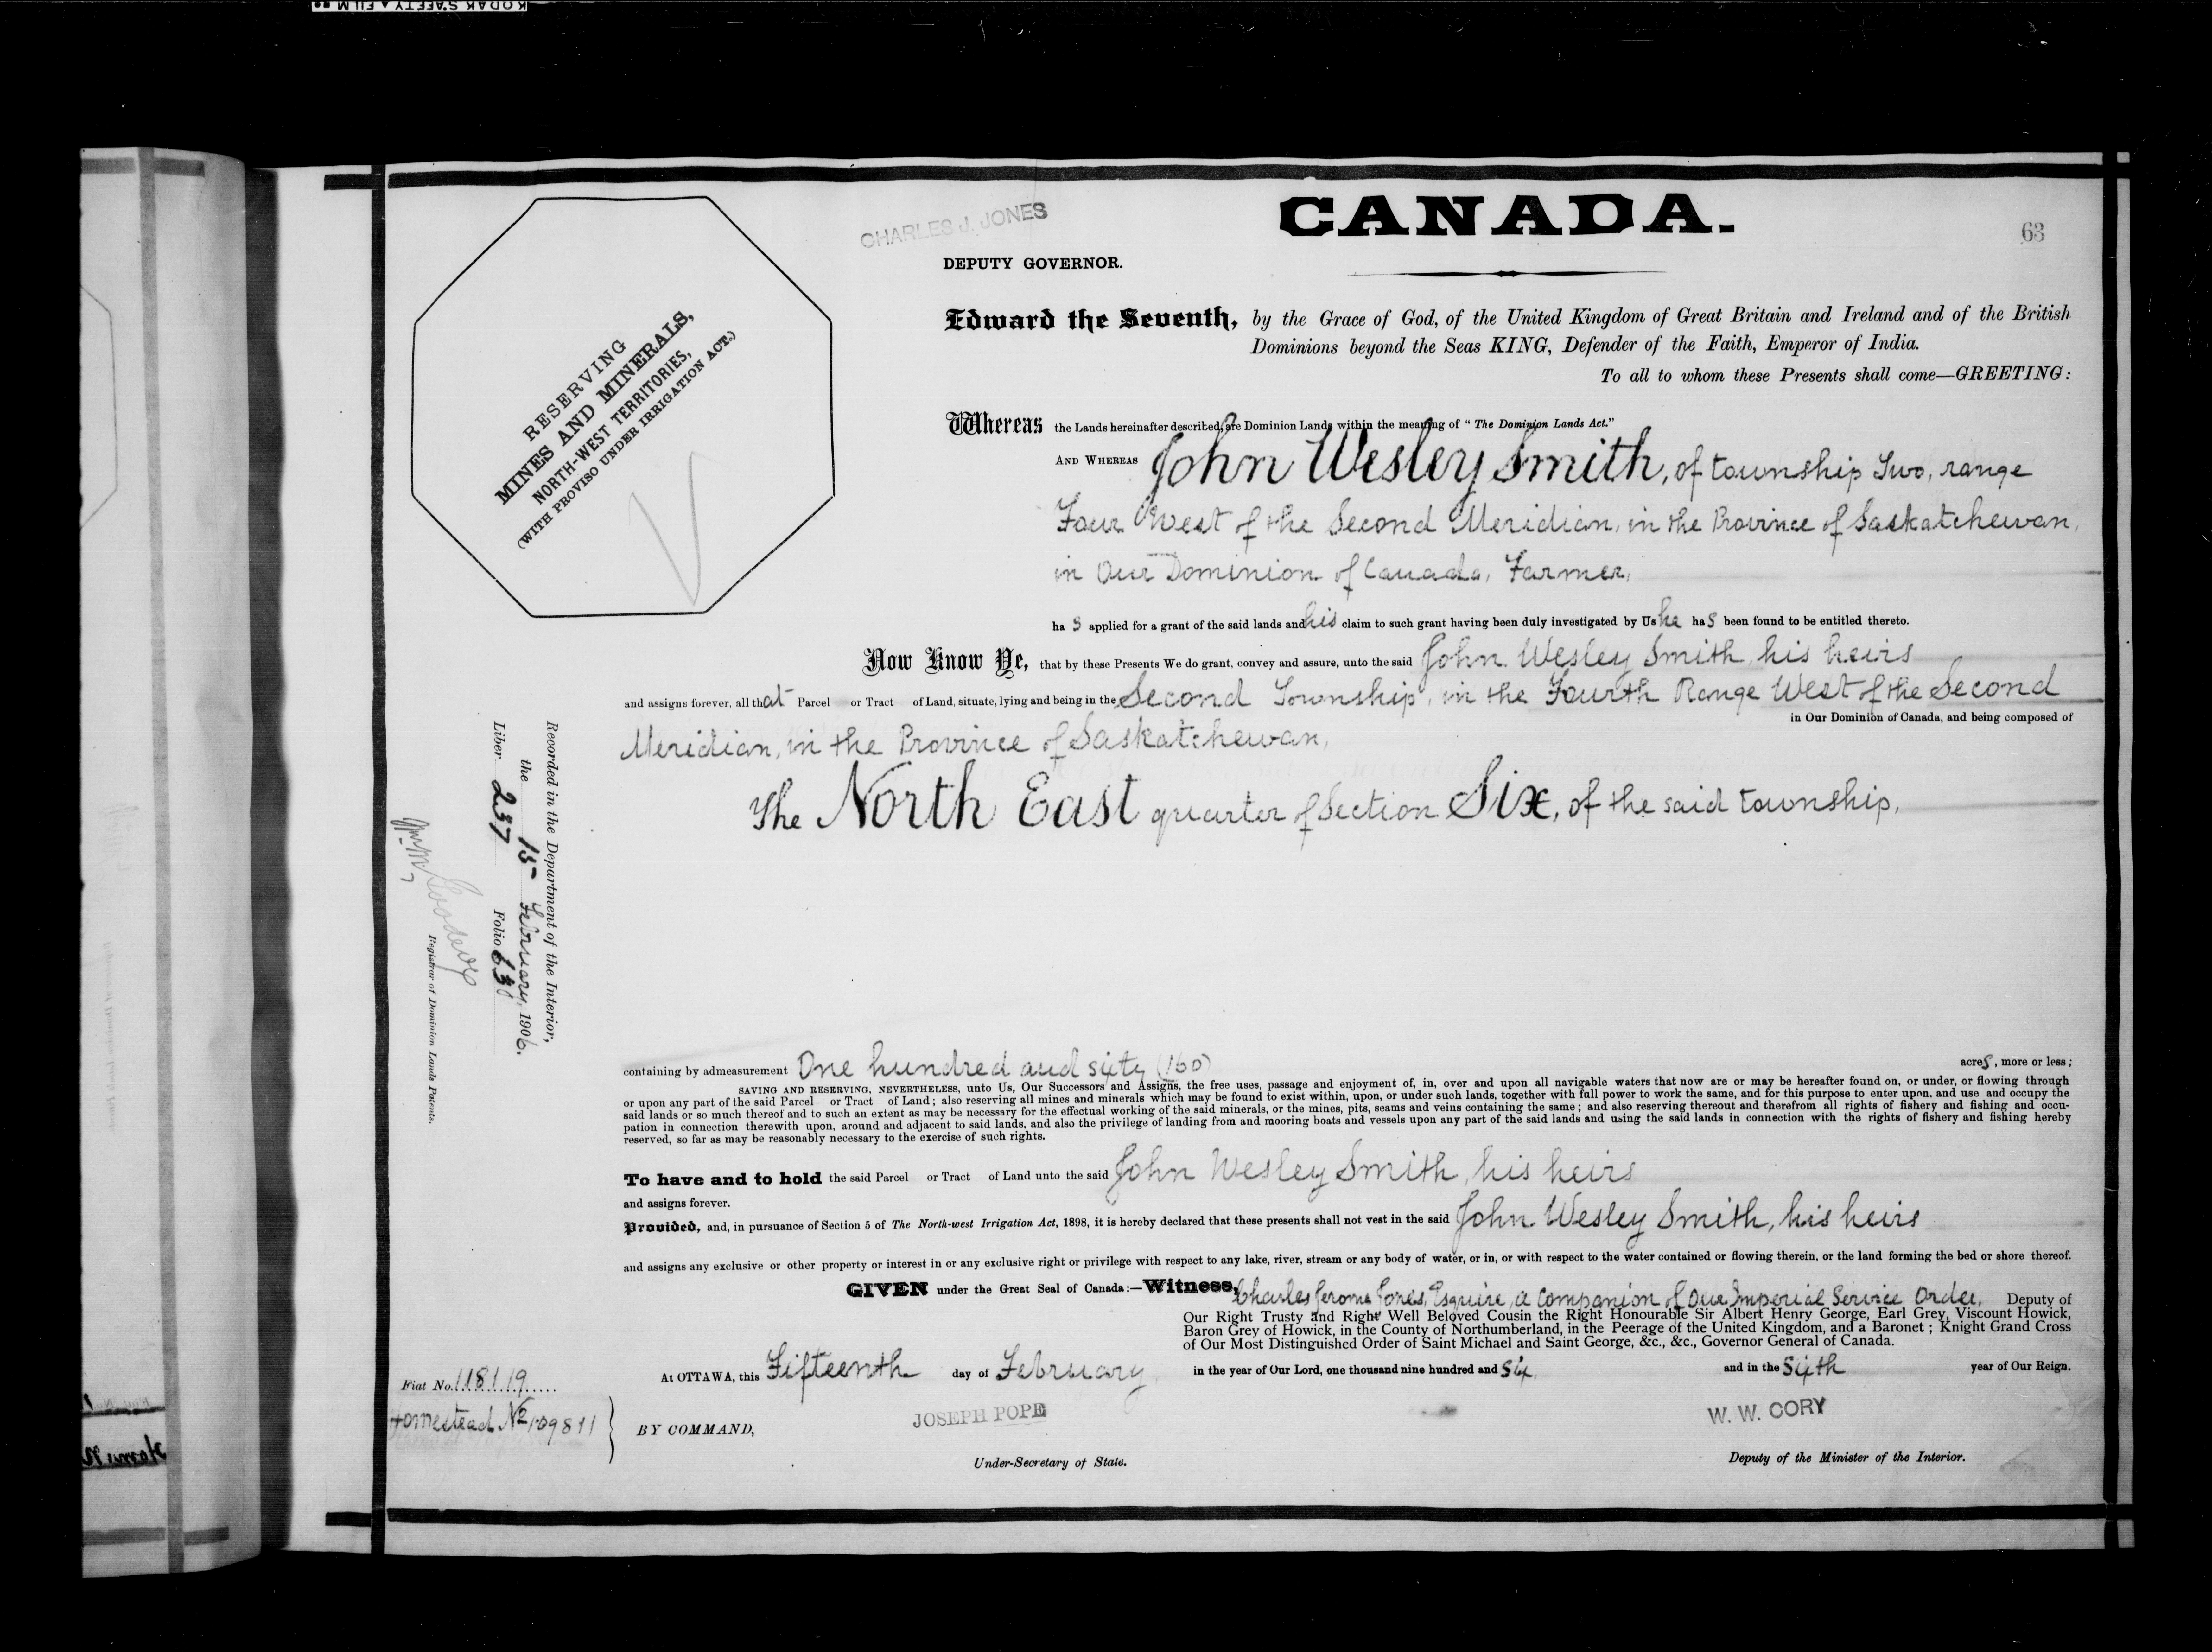 KODAK SAFETY FILM
CHARLES J. JONES
CANADA.
63
DEPUTY GOVERNOR.
RESERVING
MINES AND MINERALS,
NORTH-WEST TERRITORIES,
(WITH PROVISO UNDER IRRIGATION ACT.)
Edward the Seventh, by the Grace of God, of the United Kingdom of Great Britain and Ireland and of the British
Dominions beyond the Seas KING, Defender of the Faith, Emperor of India.
To all to whom these Presents shall come—GREETING:
Whereas the Lands hereinafter described are Dominion Lands within the meaning of "The Dominion Lands Act."
AND WHEREAS John Wesley Smith, of township Two, range
Four West of the Second Meridian, in the Province of Saskatchewan,
in Our Dominion of Canada, Farmer,
has applied for a grant of the said lands and his claim to such grant having been duly investigated by Us he has been found to be entitled thereto.
Now Know Ye, that by these Presents We do grant, convey and assure, unto the said John Wesley Smith, his heirs
and assigns forever, all that Parcel or Tract of Land, situate, lying and being in the Second Township, in the Fourth Range West of the Second
in Our Dominion of Canada, and being composed of
Meridian, in the Province of Saskatchewan,
The North East quarter of Section Six, of the said township,
Recorded in the Department of the Interior,
the 15 February, 1906.
Liber 237 Folio 63
Registrar of Dominion Lands Patents.
containing by admeasurement One hundred and sixty (160) acres, more or less;
SAVING AND RESERVING, NEVERTHELESS, unto Us, Our Successors and Assigns, the free uses, passage and enjoyment of, in, over and upon all navigable waters that now are or may be hereafter found on, or under, or flowing through
or upon any part of the said Parcel or Tract of Land; also reserving all mines and minerals which may be found to exist within, upon, or under such lands, together with full power to work the same, and for this purpose to enter upon, and use and occupy the
said lands or so much thereof and to such an extent as may be necessary for the effectual working of the said minerals, or the mines, pits, seams and veins containing the same; and also reserving thereout and therefrom all rights of fishery and fishing and occu-
pation in connection therewith upon, around and adjacent to said lands, and also the privilege of landing from and mooring boats and vessels upon any part of the said lands and using the said lands in connection with the rights of fishery and fishing hereby
reserved, so far as may be reasonably necessary to the exercise of such rights.
To have and to hold the said Parcel or Tract of Land unto the said John Wesley Smith, his heirs
and assigns forever.
Provided, and, in pursuance of Section 5 of The North-west Irrigation Act, 1898, it is hereby declared that these presents shall not vest in the said John Wesley Smith, his heirs
and assigns any exclusive or other property or interest in or any exclusive right or privilege with respect to any lake, river, stream or any body of water, or in, or with respect to the water contained or flowing therein, or the land forming the bed or shore thereof.
GIVEN under the Great Seal of Canada:—Witness, Charles Jerome Jones, Esquire, a Companion of Our Imperial Service Order, Deputy of
Our Right Trusty and Right Well Beloved Cousin the Right Honourable Sir Albert Henry George, Earl Grey, Viscount Howick,
Baron Grey of Howick, in the County of Northumberland, in the Peerage of the United Kingdom, and a Baronet; Knight Grand Cross
of Our Most Distinguished Order of Saint Michael and Saint George, &c., &c., Governor General of Canada.
At OTTAWA, this Fifteenth day of February in the year of Our Lord, one thousand nine hundred and six, and in the Sixth year of Our Reign.
Fiat No. 118119
Homestead No 109811
BY COMMAND,
JOSEPH POPE
Under-Secretary of State.
W. W. CORY
Deputy of the Minister of the Interior.